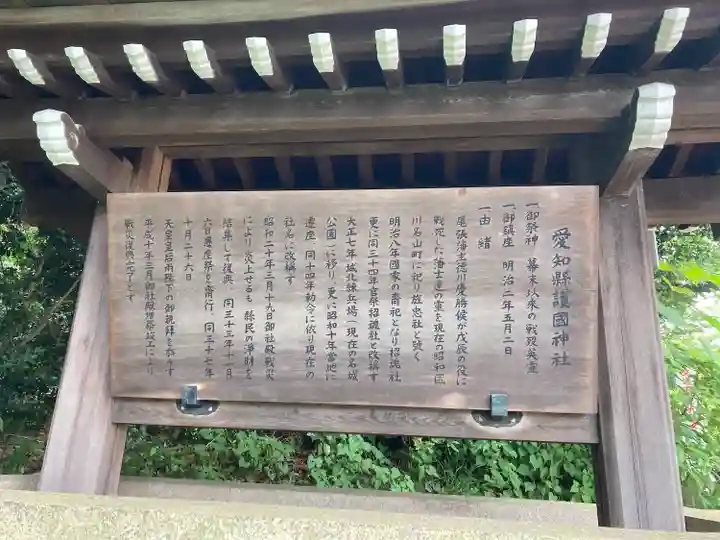 愛知縣護國神社
一、御祭神 幕末以来の戦歿英霊
一、御鎮座 明治二年五月二日
一、由緒
尾張藩主徳川慶勝侯が戊辰の役に
戦死した藩士達の霊を現在の昭和区
川名山町に祀り旌忠社と號く
明治八年國家の齋祀となり招魂社
更に同三十四年官祭招魂社と改稱す
大正七年城北練兵場(現在の名城
公園)に移り更に昭和十年當地に
遷座 同十四年勅令に依り現在の
社名に改稱す
昭和二十年三月十九日御社殿戦災
により炎上せるも 縣民の浄財を
結集して復興、同三十三年十一月
六日遷座祭を斎行、同三十七年
十月二十六日
天皇皇后両陛下の御親拝を忝うす
平成十年三月御社殿増築竣工により
戦災復興完了す